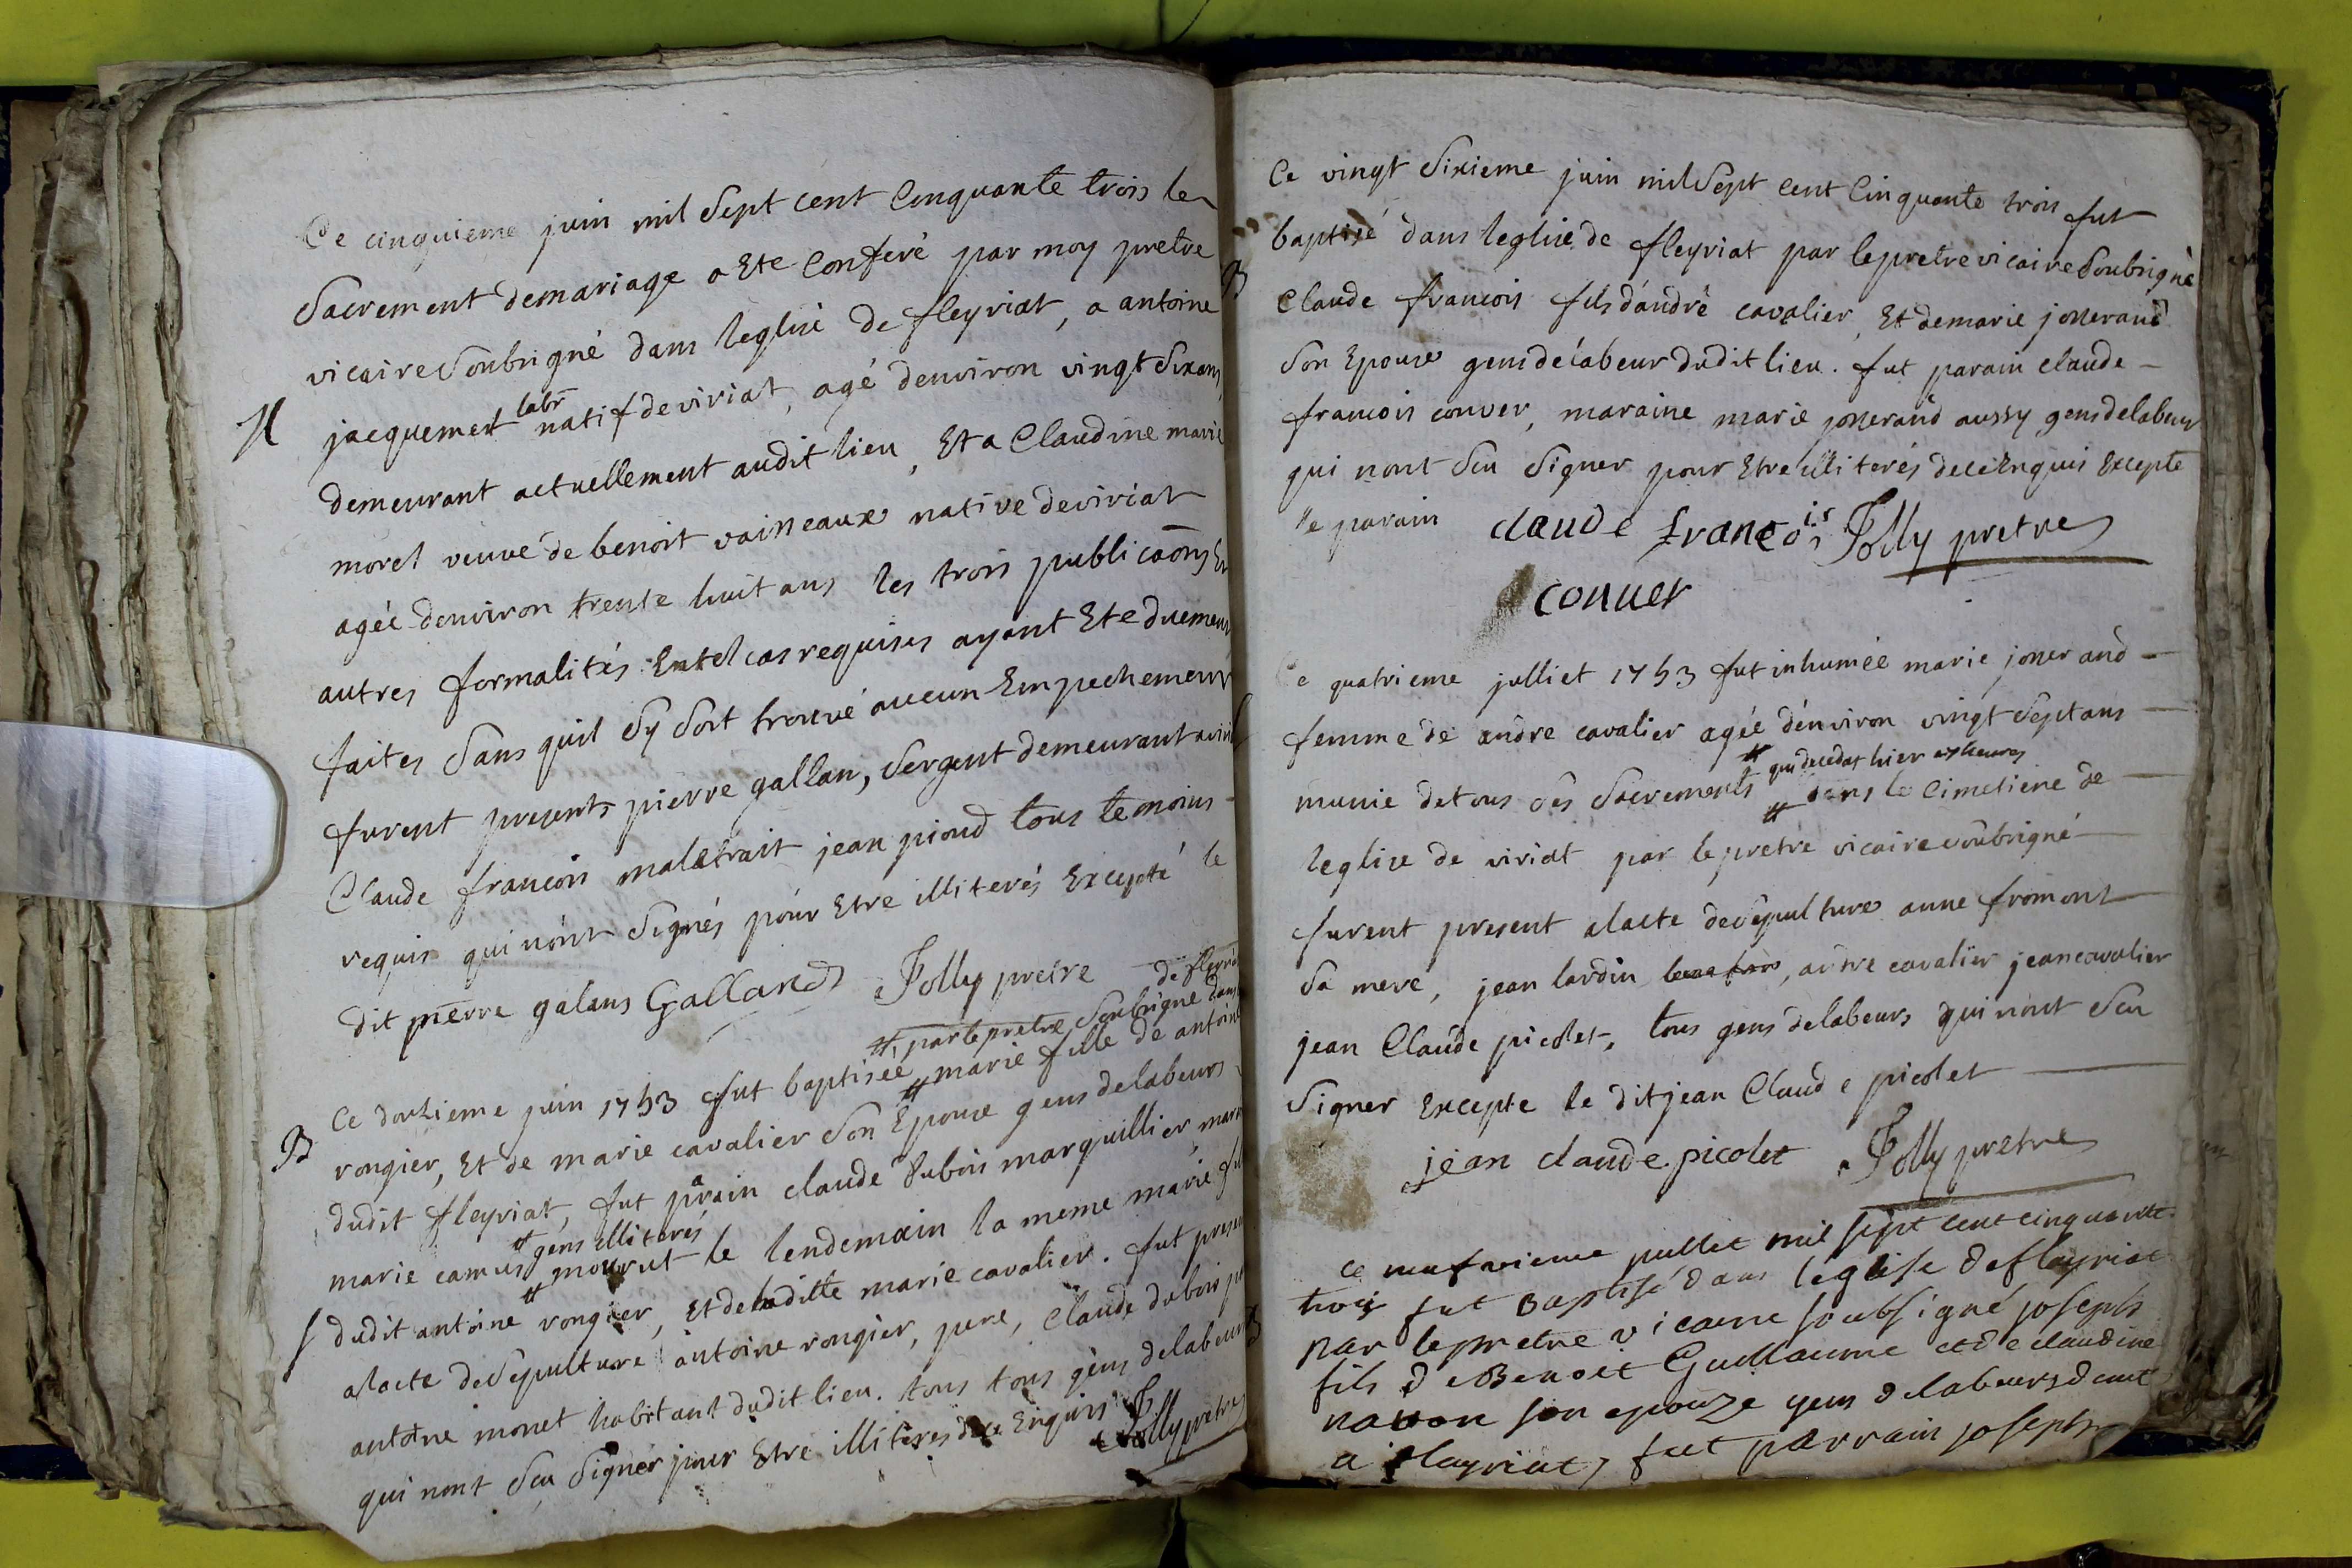 Ce cinquieme juin mil Sept cent Cinquante trois le
Sacrement demariage a Ete Conferé par moy pretre
vicaire Soubsigné dans leglise de fleyriat, a antoine
M
jacquemet labr natif de viriat, agé denviron vingt Six ans
demeurant actuellement audit lieu, Et a Claudine marie
morel veuve de benoit vaineaux native de viriat
agée denviron trente huit ans les trois publicaons Et
autres formalités En tel cas requises ayant Ete duement
faites Sans quil Sy Soit trouvé aucun Empechement
furent presents pierre gallan, Sergent demeurant a
Claude francois maletrait jean pioud tous temoins
requis qui nont Signés pour Etre illiterés Excepté le
dit pierre galans Galland Jolly pretre
de fleyriat
# par le pretre Soubsigné dans
Ce douzieme juin 1753 fut baptisée # marie fille de antoine
B
rongier, Et de marie cavalier Son Epouse gens delabeurs
dudit fleyriat, fut parain claude dubois marguillier
# gens illiterés
marie camus # mourut le lendemain la meme marie
S dudit antoine rongier, Et deladitte marie cavalier. fut
alacte de Sepulture antoine rongier, pere, Claude dubois
antoine monet habitant dudit lieu. tous tous gens delabeurs
qui nont Sçu Signer pour Etre illiterés de ce Enquis Jolly pretre
Ce vingt Sixieme juin mil Sept cent Cinquante trois fut
baptisé dans leglise de fleyriat par le pretre vicaire Soubsigné
B
Claude francois fils dandré cavalier, Et de marie joserand
Son Epouse gens delabeur dudit lieu. fut parain claude
francois conver, maraine marie joserand aussy gens delabeur
qui nont Sçu Signer pour Etre illiterés de ce Enquis Excepte
le parain claude francois Jolly pretre
conuer
Ce quatrieme julliet 1753 fut inhumée marie joserand
femme de andre cavalier agée denviron vingt Sept ans
# qui deceda hier
munie de tous Ses Sacrements # dans le Cimetiere de
leglise de viriat par le pretre vicaire Soubsigné
furent present alacte de Sepulture anne fromont
Sa mere, jean lardin, autre cavalier jean cavalier
jean Claude picolet, tous gens delabeurs qui nont Sçu
Signer Excepte le dit jean Claude picolet
jean claude picolet Jolly pretre
ce neufvieme juillet mil sept cent cinquante
trois fut Baptisé dans leglise de fleyriat
B
par le pretre vicaire soubsigné joseph
fils de Benoit Guillaume et de claudine
son epouze gens de labeurs
a fleyriat, fut parrain joseph